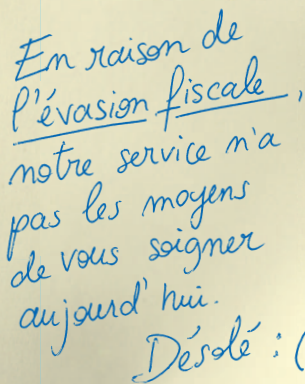 En raison de
l'évasion fiscale,
notre service n'a
pas les moyens
de vous soigner
aujourd'hui.
Désolé :(